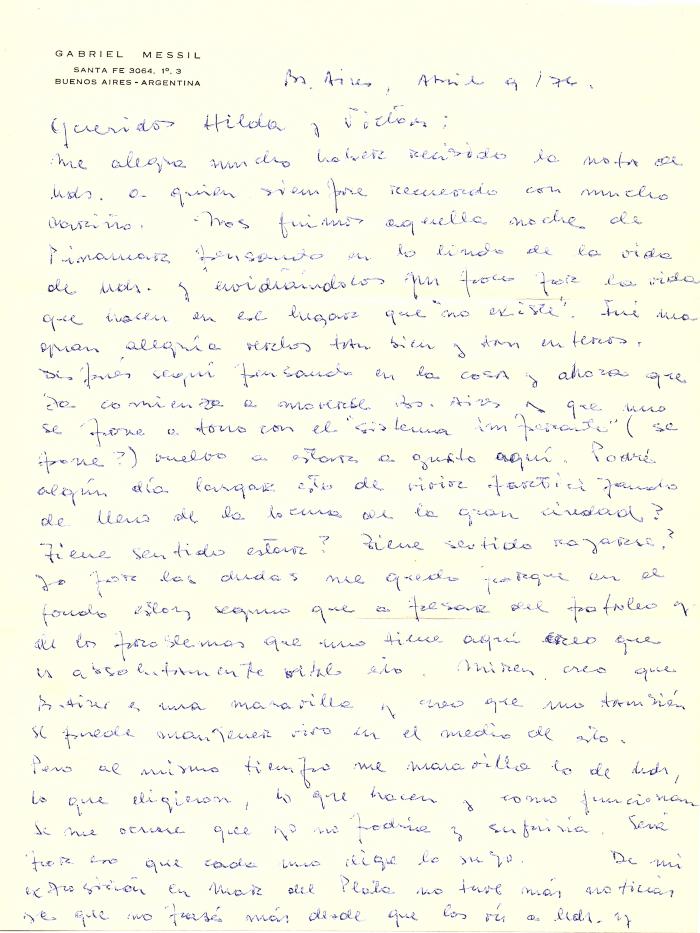 GABRIEL MESSIL
SANTA FE 3064, 1º, 3
BUENOS AIRES - ARGENTINA
Bs. Aires, Abril 9/76.
Queridos Hilda y Victor:
Me alegra mucho haber recibido la nota de
Uds. a quien siempre recuerdo con mucho
cariño. Nos fuimos aquella noche de
Pinamar pensando en lo lindo de la vida
de Uds. y envidiándolos un poco por la vida
que hacen en ese lugar que "no existe". Fué una
gran alegría verlos tan bien y tan enteros.
Después seguí pensando en la cosa y ahora que
ya comienza a moverse Bs. Aires y que uno
se pone a tono con el "sistema imperante" (se
pone?) vuelvo a estar a gusto aquí. Podré
algún día largar esto de vivir participando
de lleno de la locura de la gran ciudad?
Tiene sentido estar? Tiene sentido rajarse?
Yo por las dudas me quedo porque en el
fondo estoy seguro que a pesar del patoleo y
de los problemas que uno tiene aquí creo que
es absolutamente vital esto. Miren, creo que
Bs. Aires es una maravilla y creo que uno también
se puede mantener vivo en el medio de esto.
Pero al mismo tiempo me maravilla lo de Uds,
lo que eligieron, lo que hacen y como funcionan
Se me ocurre que yo no podría y sufriría. Será
por eso que cada uno elige lo suyo. De mi
exposición en Mar del Plata no tuve más noticias
se que no pasó más desde que los ví a Uds. y